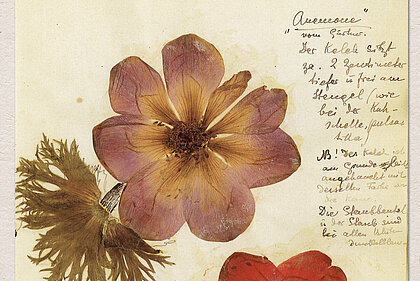 "Anemone"
"vom Gärtner.
Der Kelch sitzt
ca. 2 Zentimeter
tiefer u. frei am
Stengel (wie
bei der Kuh-
schelle, pulsa
tilla)
NB! Der Kelch ist
am Grunde
angehaucht mit
derselben Farbe wie
die
Die Staubbeutel
u. der Staub sind
bei allen